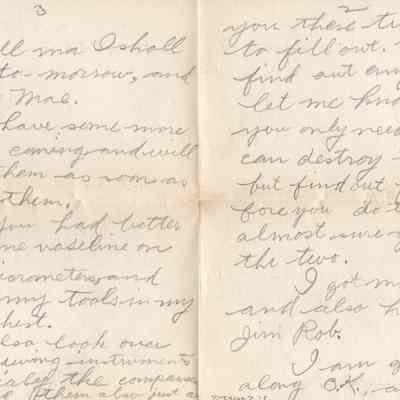 3
ll ma I shall
to-morrow, and
Mae.
have some more
coming and will
them as soon as
them.
you had better
me vaseline on
icrometers and
my tools in my
hest.
lso look over
awing instruments
ially the compasses
them also just a
2
you these tw
to fill out.
find out
let me kno
you only need
can destroy
but find out
fore you do t
almost sure y
the two.
I got m
and also h
Jim Rob.
I am g
along O.K., a